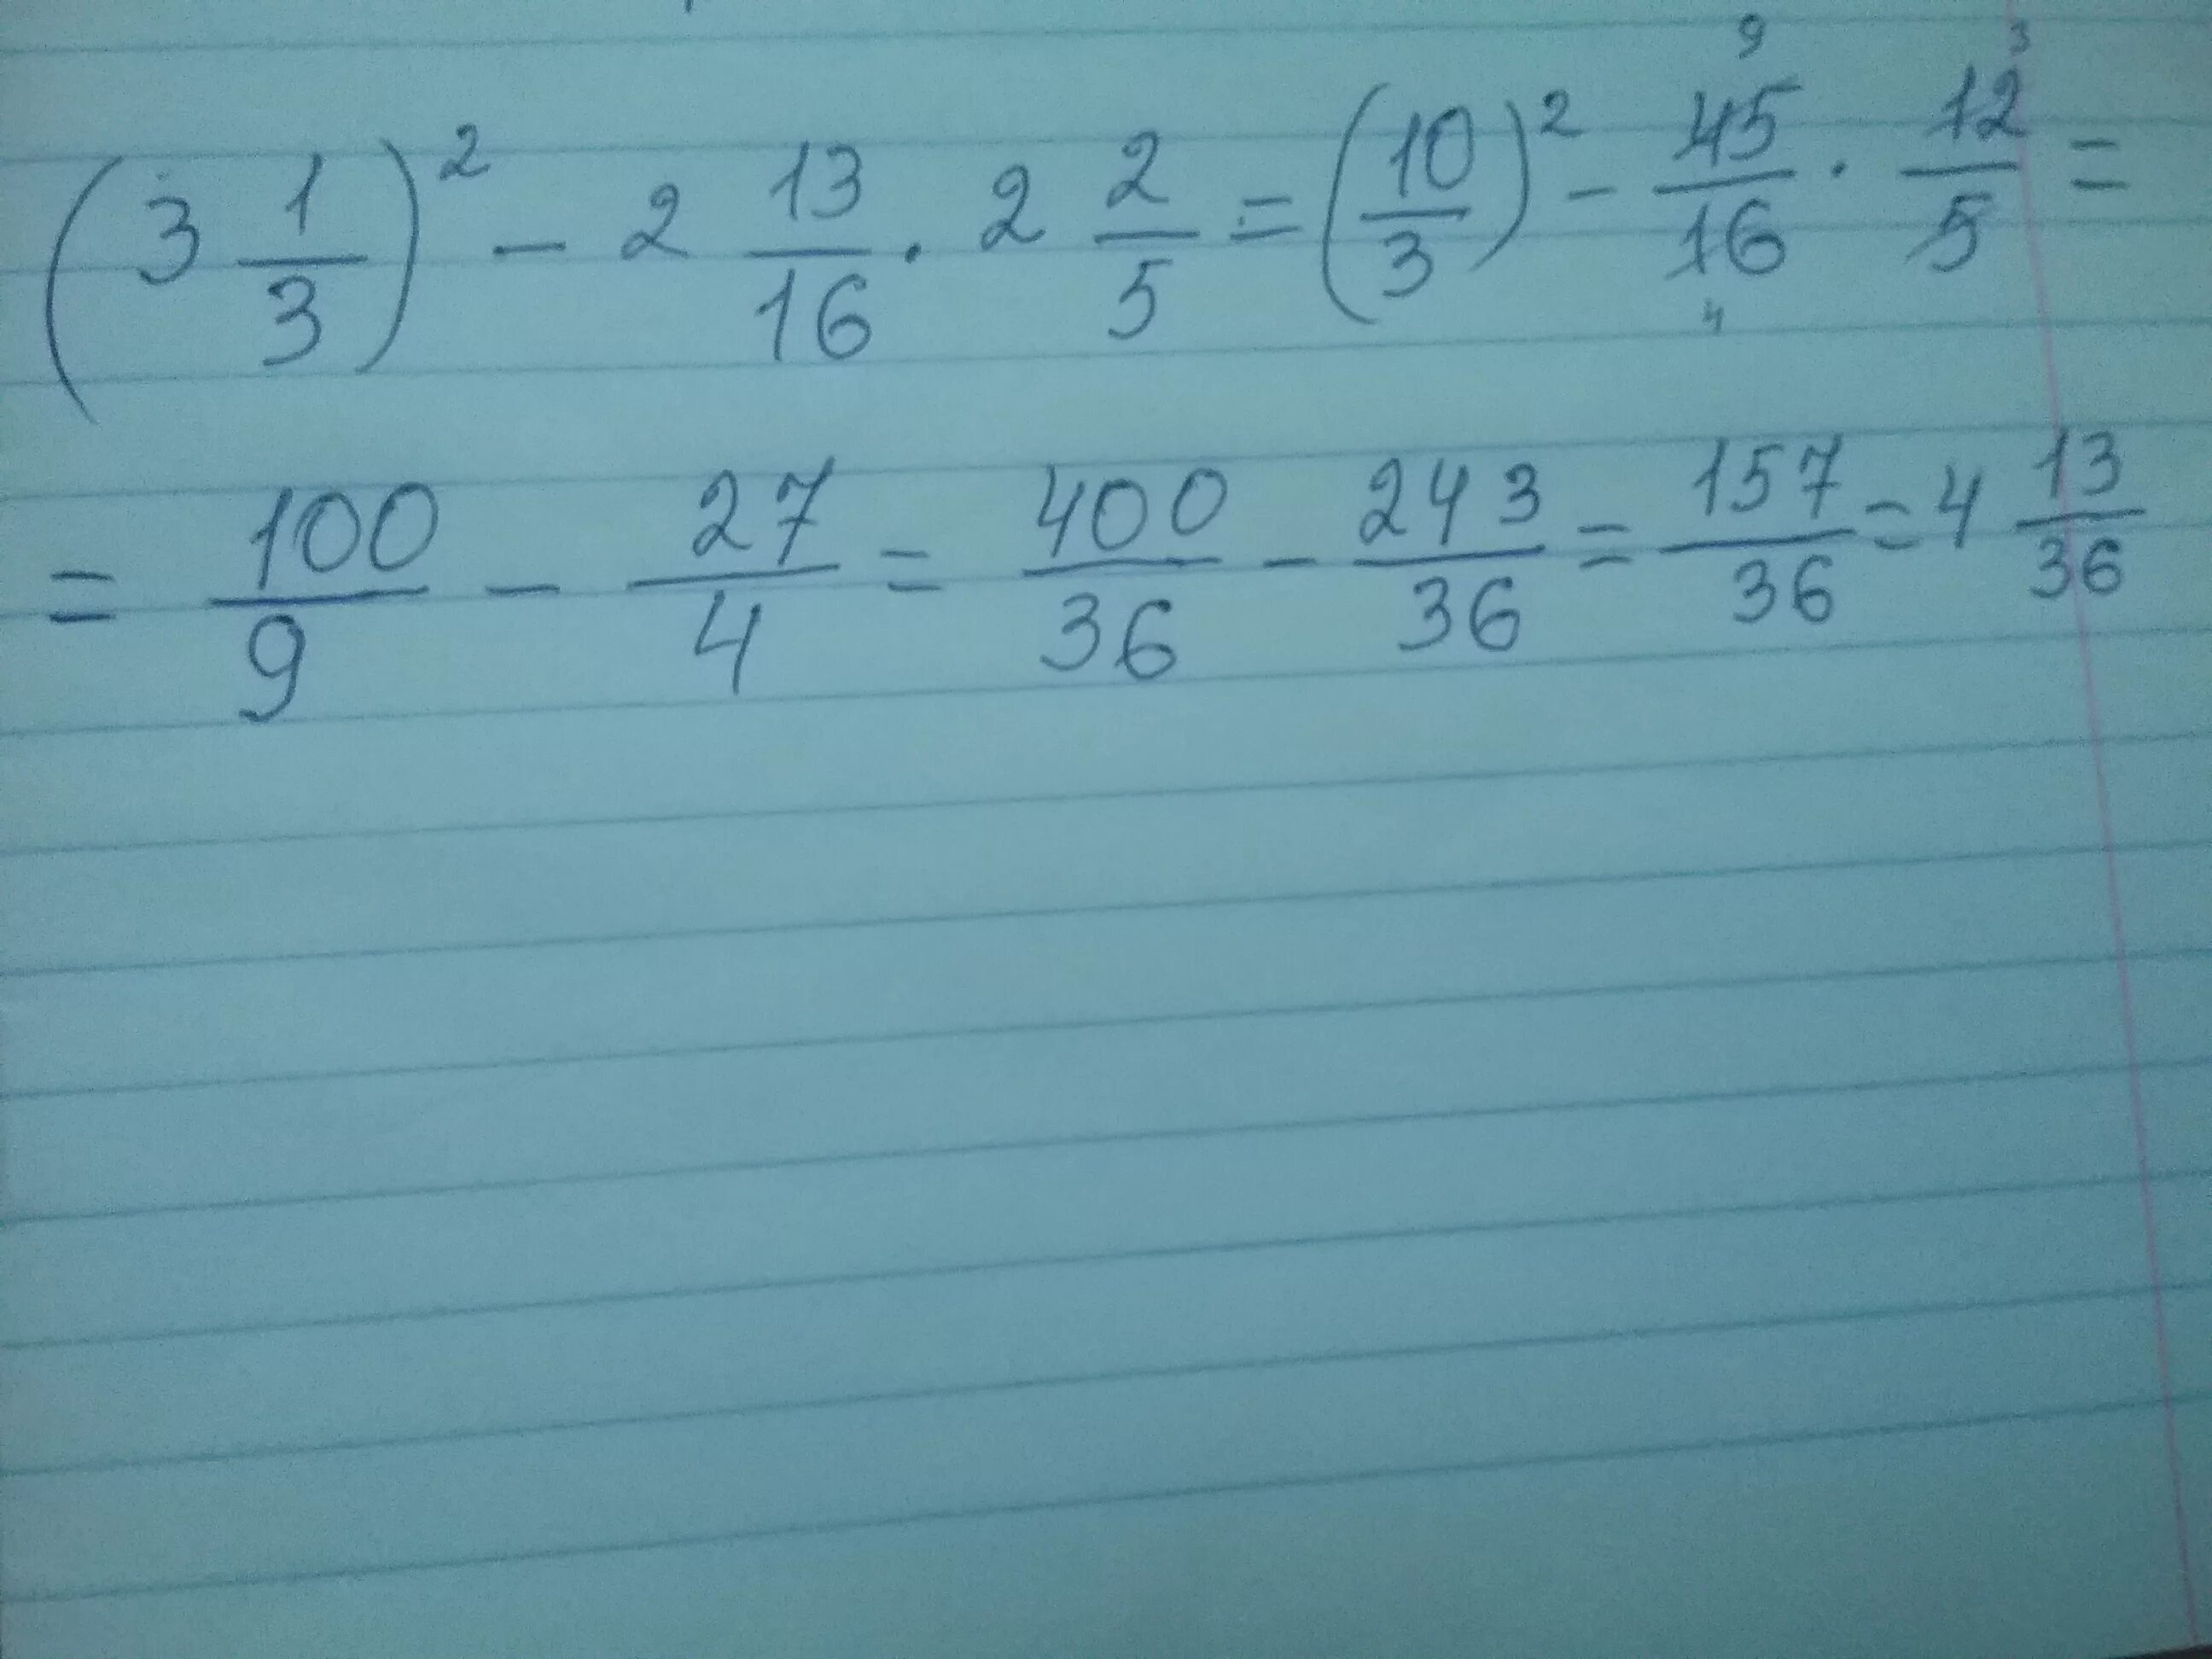 (3 1/3)² - 2 13/16 · 2 2/5 = (10/3)² - 45/16 · 12/5 = 9 3 4
= 100/9 - 27/4 = 400/36 - 243/36 = 157/36 = 4 13/36